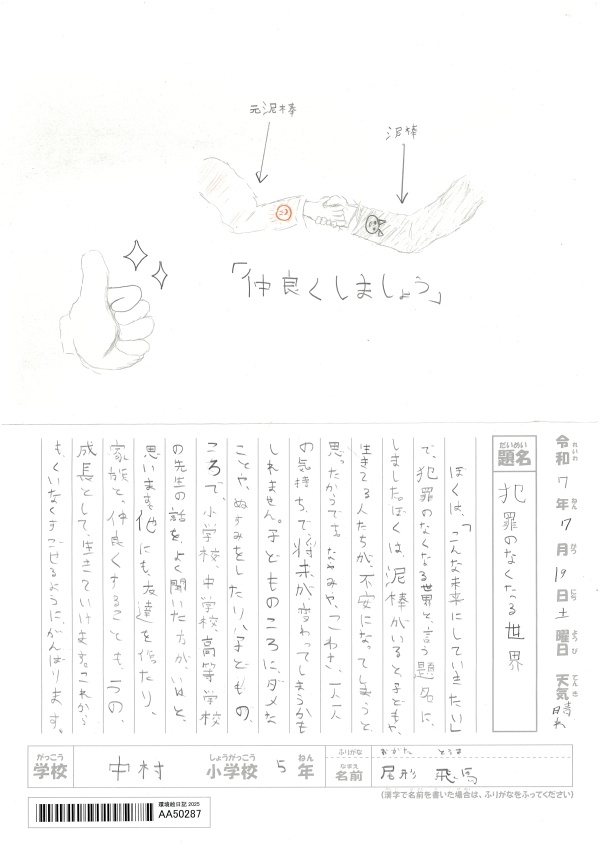 元泥棒
泥棒
「仲良くしましょう」
令和7年7月19日土曜日 天気晴れ
れいわ ねん がつ にち ようび てんき
だいめい
題名 犯罪のなくなる世界
ぼくは、「こんな未来にしていきたい」
で、犯罪のなくなる世界と、言う題名に、
しました。ぼくは、泥棒がいると子どもや、
生きてる人たちが、不安になってしまうと
思ったからです。なやみや、こわさ、一人一人
の気持ち、で、将来が変わってしまうかも
しれません。子どものころに、ダメな
ことや、ぬすみをしたり、子どもの
ころで、小学校、中学校、高等学校
の先生の話を、よく聞いた方が、いいと、
思います。他にも、友達を作たり、
家族と、仲良くすることも、一つの、
成長として、生きていけます。これから
もくいなくすごせるように、がんばります。
がっこう しょうがっこう ねん
学校 中村 小学校 5年
ふりがな おがた とうま
なまえ
名前 尾形 飛馬
(漢字で名前を書いた場合は、ふりがなをふってください)
環境絵日記 2025
AA50287